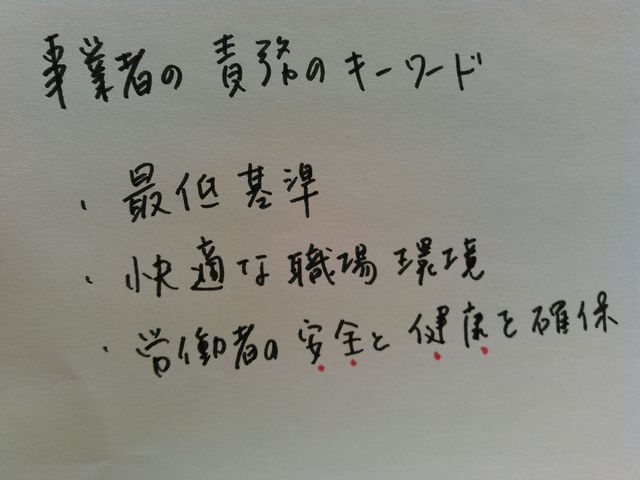 事業者の責務のキーワード
・最低基準
・快適な職場環境
・労働者の安全と健康を確保